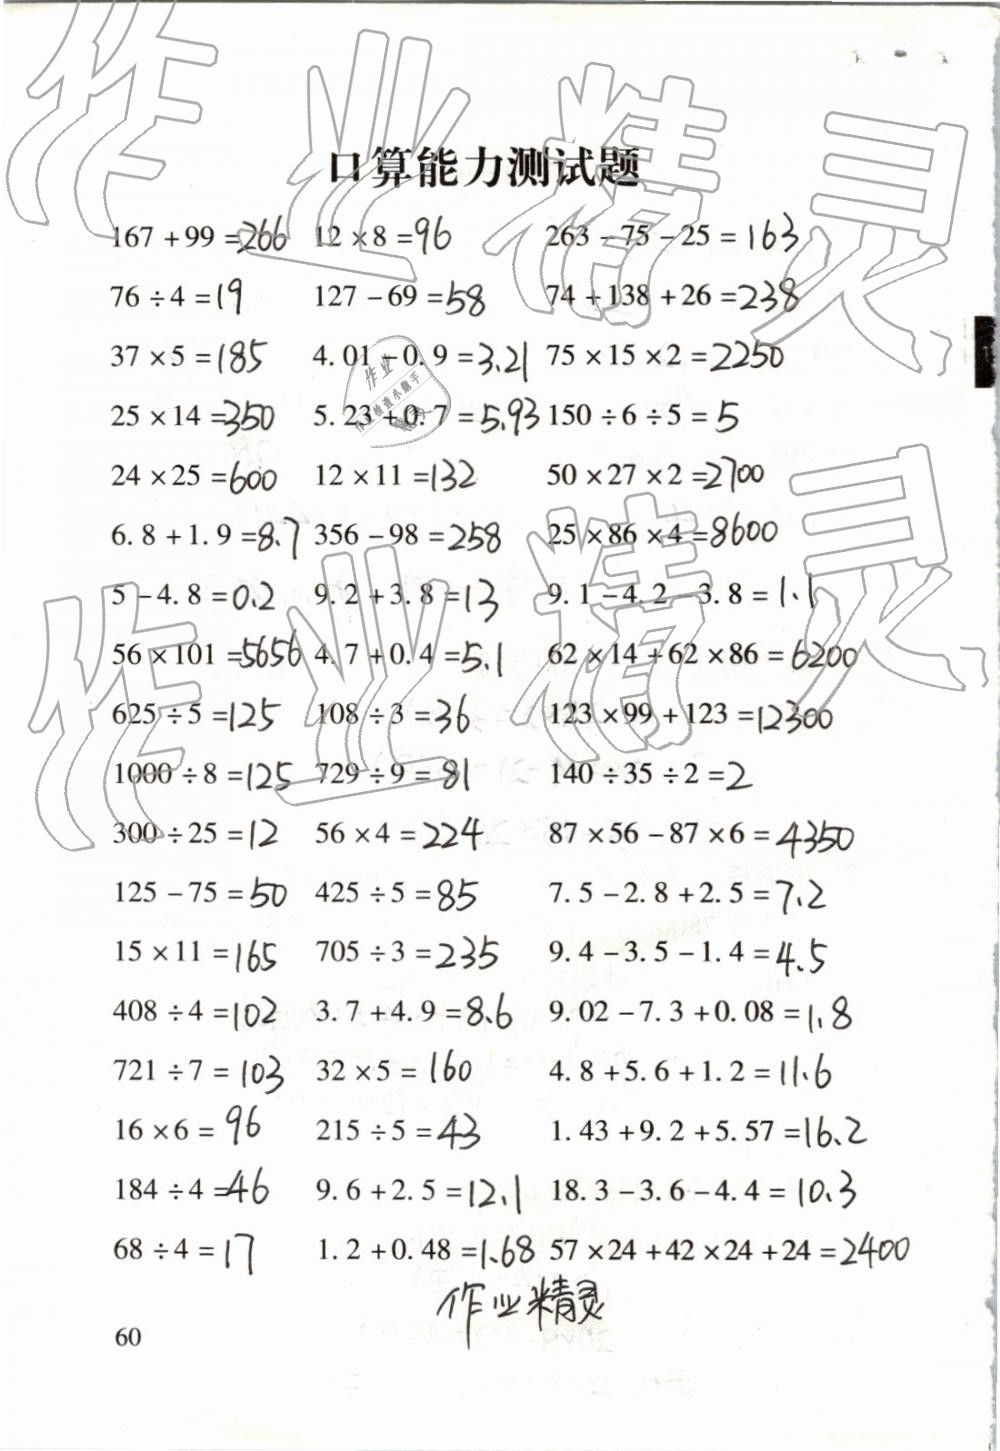 口算能力测试题
167+99=266 12×8=96 263-75-25=163
76÷4=19 127-69=58 74+138+26=238
37×5=185 4.01-0.9=3.21 75×15×2=2250
25×14=350 5.23+0.7=5.93 150÷6÷5=5
24×25=600 12×11=132 50×27×2=2700
6.8+1.9=8.7 356-98=258 25×86×4=8600
5-4.8=0.2 9.2+3.8=13 9.1-4.2-3.8=1.1
56×101=5656 4.7+0.4=5.1 62×14+62×86=6200
625÷5=125 108÷3=36 123×99+123=12300
1000÷8=125 729÷9=81 140÷35÷2=2
300÷25=12 56×4=224 87×56-87×6=4350
125-75=50 425÷5=85 7.5-2.8+2.5=7.2
15×11=165 705÷3=235 9.4-3.5-1.4=4.5
408÷4=102 3.7+4.9=8.6 9.02-7.3+0.08=1.8
721÷7=103 32×5=160 4.8+5.6+1.2=11.6
16×6=96 215÷5=43 1.43+9.2+5.57=16.2
184÷4=46 9.6+2.5=12.1 18.3-3.6-4.4=10.3
68÷4=17 1.2+0.48=1.68 57×24+42×24+24=2400
作业精灵
60
作业精灵
作业精灵
作业
检查小助手